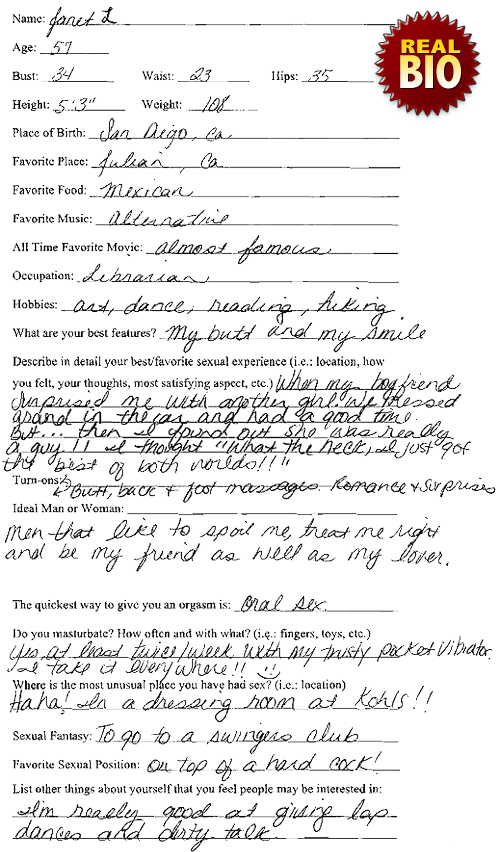 Name: Janet L
REAL
BIO
Age: 57
Bust: 34 Waist: 23 Hips: 35
Height: 5'3" Weight: 108
Place of Birth: San Diego, Ca.
Favorite Place: Julian, Ca
Favorite Food: Mexican
Favorite Music: Alternative
All Time Favorite Movie: almost famous
Occupation: Librarian
Hobbies: art, dance, reading, hiking
What are your best features? My butt and my smile
Describe in detail your best/favorite sexual experience (i.e.: location, how
you felt, your thoughts, most satisfying aspect, etc.) When my boyfriend
surprised me with another girl. We messed
around in the car and had a good time.
But... then I found out she was really
a guy!! I thought "What the heck, I just got
the best of both worlds!!"
Turn-ons: Butt, back & foot massages. Romance & Surprises
Ideal Man or Woman:
men that like to spoil me, treat me right
and be my friend as well as my lover.
The quickest way to give you an orgasm is: Oral sex.
Do you masturbate? How often and with what? (i.e.: fingers, toys, etc.)
Yes, at least twice/week with my trusty pocket vibrator.
I take it everywhere!!
Where is the most unusual place you have had sex? (i.e.: location)
Haha! In a dressing room at Kohls!!
Sexual Fantasy: To go to a swingers club
Favorite Sexual Position: on top of a hard cock!
List other things about yourself that you feel people may be interested in:
I'm really good at giving lap
dances and dirty talk